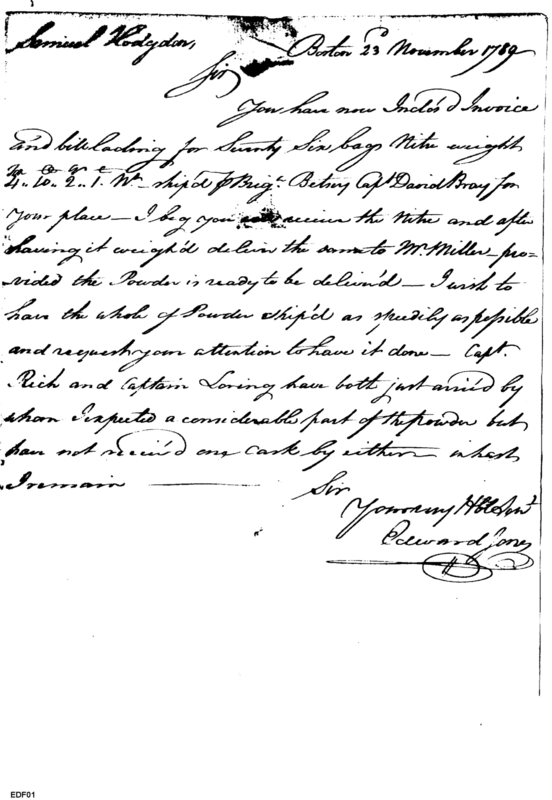 Samuel Hodgdon,
Boston 23d November 1789
Sir
You have now Inclos'd Invoice
And bill lading for Seventy Six bags Nitre weight
4.. 10.. 2.. 1. Wt. ship'd p Brign Betsey Capt David Bray for
Your place — I beg you receive the Nitre and after
having it weigh'd deliver the same to Mr. Miller — pro=
vided the Powder is ready to be deliver'd — I wish to
have the whole of Powder ship'd as speedily as possible
and request your attention to have it done — Capt.
Rich and Captain Loring have both just arriv'd by
whom I expected a considerable part of the powder but
have not receiv'd one cask by either — in hast
I remain
Sir
Your very Hble Sert
Edward Jones
EDF01